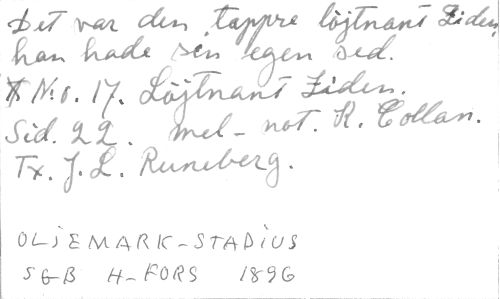 Det var den tappre löjtnant Ziden,
han hade sen egen sed.
N:o. 17. Löjtnant Ziden.
Sid. 22. mel-not. K. Collan.
Tx. J. L. Runeberg.
OLJEMARK-STADIUS
SGB H-FORS 1896